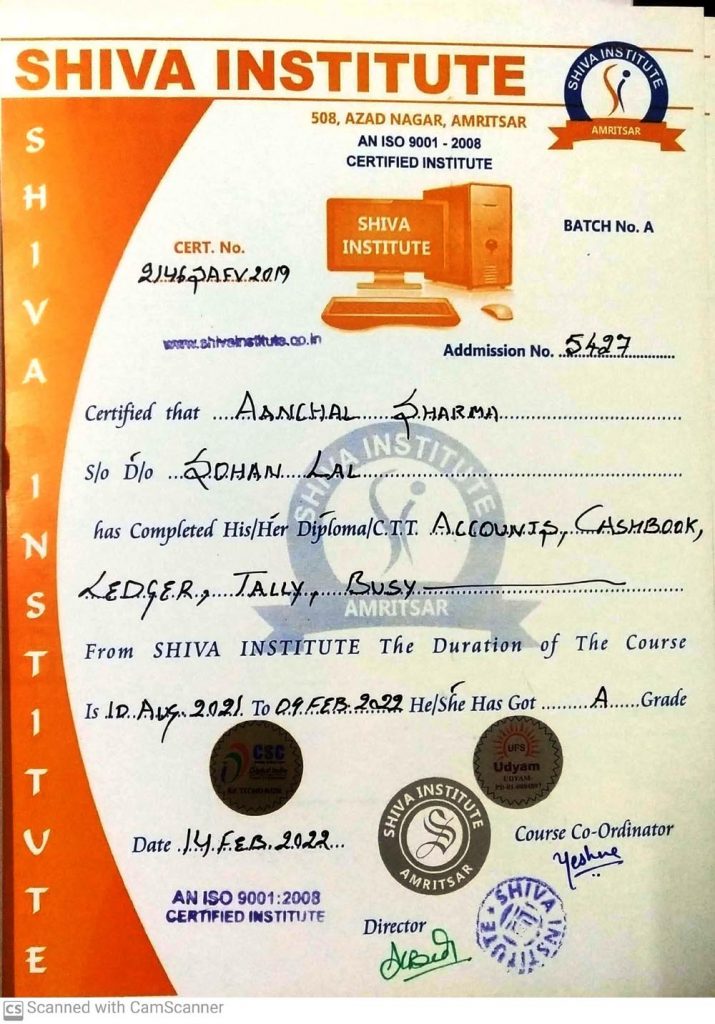 SHIVA INSTITUTE
SHIVA INSTITUTE
AMRITSAR
508, AZAD NAGAR, AMRITSAR
AN ISO 9001 - 2008
CERTIFIED INSTITUTE
SHIVA INSTITUTE
SHIVA
INSTITUTE
BATCH No. A
CERT. No.
2146JAFV2019
www.shivainstitute.co.in
Addmission No. 5427
Certified that AANCHAL SHARMA
S/o D/o SOHAN LAL
has Completed His/Her Diploma/C.T.T. ACCOUNTS, CASHBOOK,
LEDGER, TALLY, BUSY
SHIVA INSTITUTE
AMRITSAR
From SHIVA INSTITUTE The Duration of The Course
Is 10 AUG. 2021 To 09 FEB. 2022 He/She Has Got A Grade
CSC
UFS
Udyam
UDYAM-
Date 14 FEB. 2022
SHIVA INSTITUTE
AMRITSAR
Course Co-Ordinator
AN ISO 9001:2008
CERTIFIED INSTITUTE
SHIVA INSTITUTE
Director
CS Scanned with CamScanner